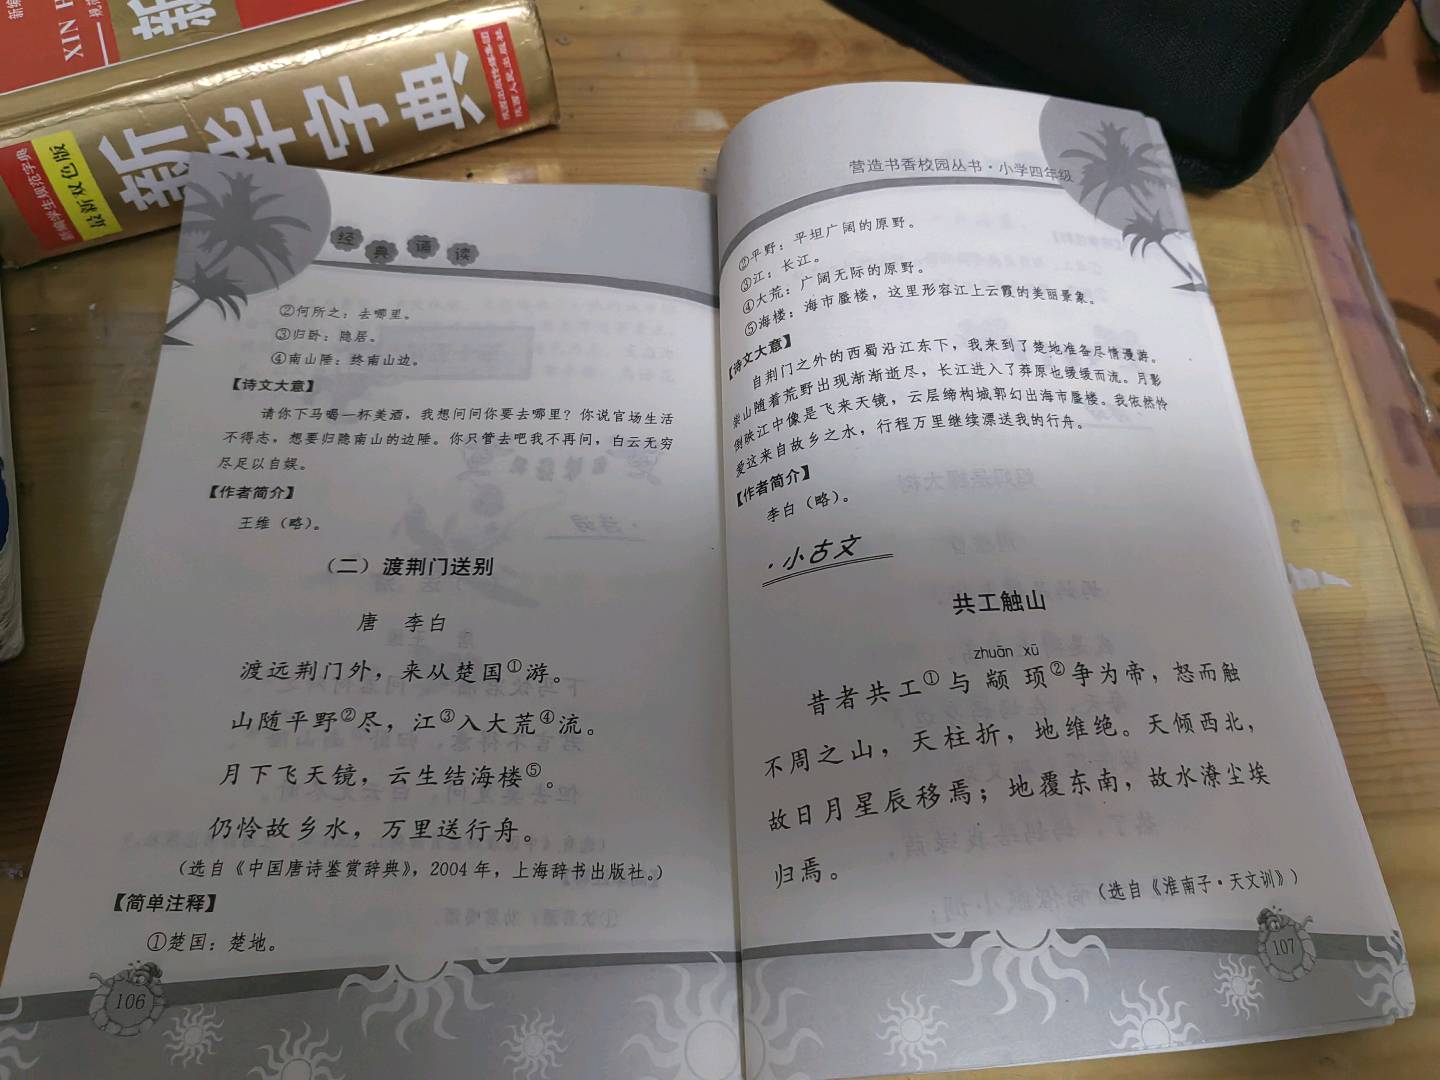 XIN H
新
新华字典
最新双色版
经典诵读
②何所之：去哪里。
③归卧：隐居。
④南山陲：终南山边。
【诗文大意】
请你下马喝一杯美酒，我想问问你要去哪里？你说官场生活
不得志，想要归隐南山的边陲。你只管去吧我不再问，白云无穷
尽足以自娱。
【作者简介】
王维（略）。
（二）渡荆门送别
唐 李白
渡远荆门外，来从楚国①游。
山随平野②尽，江③入大荒④流。
月下飞天镜，云生结海楼⑤。
仍怜故乡水，万里送行舟。
（选自《中国唐诗鉴赏辞典》，2004年，上海辞书出版社。）
【简单注释】
①楚国：楚地。
106
营造书香校园丛书·小学四年级
②平野：平坦广阔的原野。
③江：长江。
④大荒：广阔无际的原野。
⑤海楼：海市蜃楼，这里形容江上云霞的美丽景象。
【诗文大意】
自荆门之外的西蜀沿江东下，我来到了楚地准备尽情漫游。
崇山随着荒野出现渐渐逝尽，长江进入了莽原也缓缓而流。月影
倒映江中像是飞来天镜，云层缔构城郭幻出海市蜃楼。我依然怜
爱这来自故乡之水，行程万里继续漂送我的行舟。
【作者简介】
李白（略）。
·小古文
共工触山
zhuān xū
昔者共工①与颛顼②争为帝，怒而触
不周之山，天柱折，地维绝。天倾西北，
故日月星辰移焉；地覆东南，故水潦尘埃
归焉。
（选自《淮南子·天文训》）
107